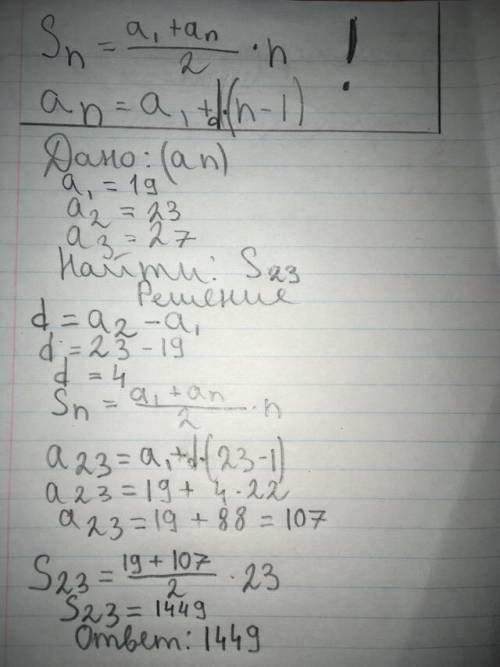 Sn = (a₁ + an)/2 · n !
an = a₁ + d·(n - 1)
Дано: (an)
a₁ = 19
a₂ = 23
a₃ = 27
Найти: S₂₃
Решение
d = a₂ - a₁
d = 23 - 19
d = 4
Sn = (a₁ + an)/2 · n
a₂₃ = a₁ + d·(23 - 1)
a₂₃ = 19 + 4 · 22
a₂₃ = 19 + 88 = 107
S₂₃ = (19 + 107)/2 · 23
S₂₃ = 1449
Ответ: 1449